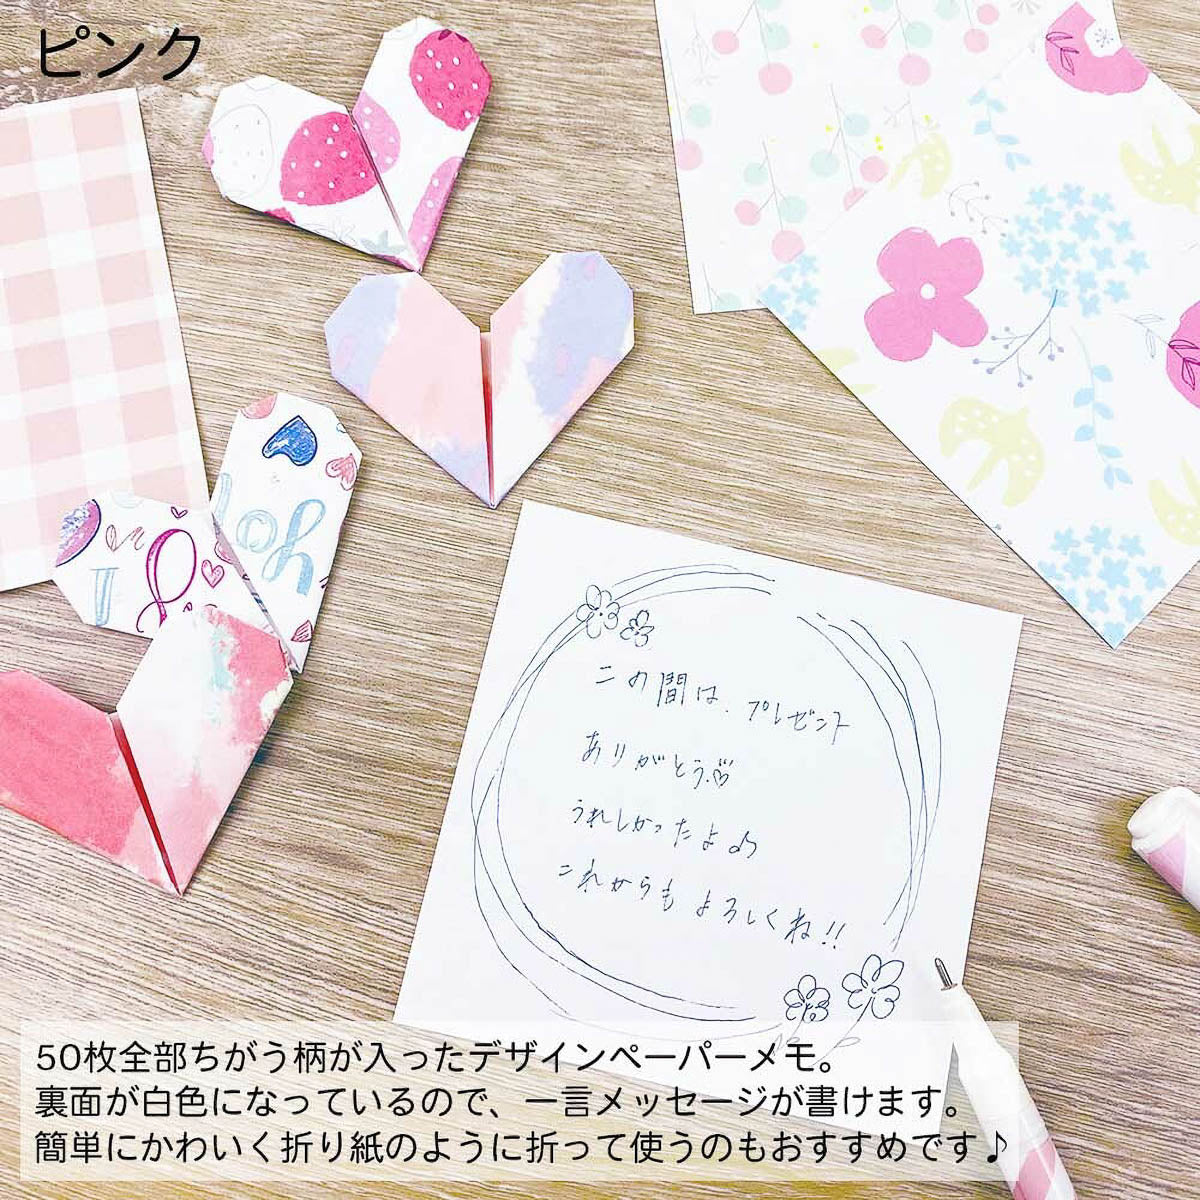 ピンク
この間は、プレゼント
ありがとう♡
うれしかったよ♪
これからもよろしくね!!
50枚全部ちがう柄が入ったデザインペーパーメモ。
裏面が白色になっているので、一言メッセージが書けます。
簡単にかわいく折り紙のように折って使うのもおすすめです♪